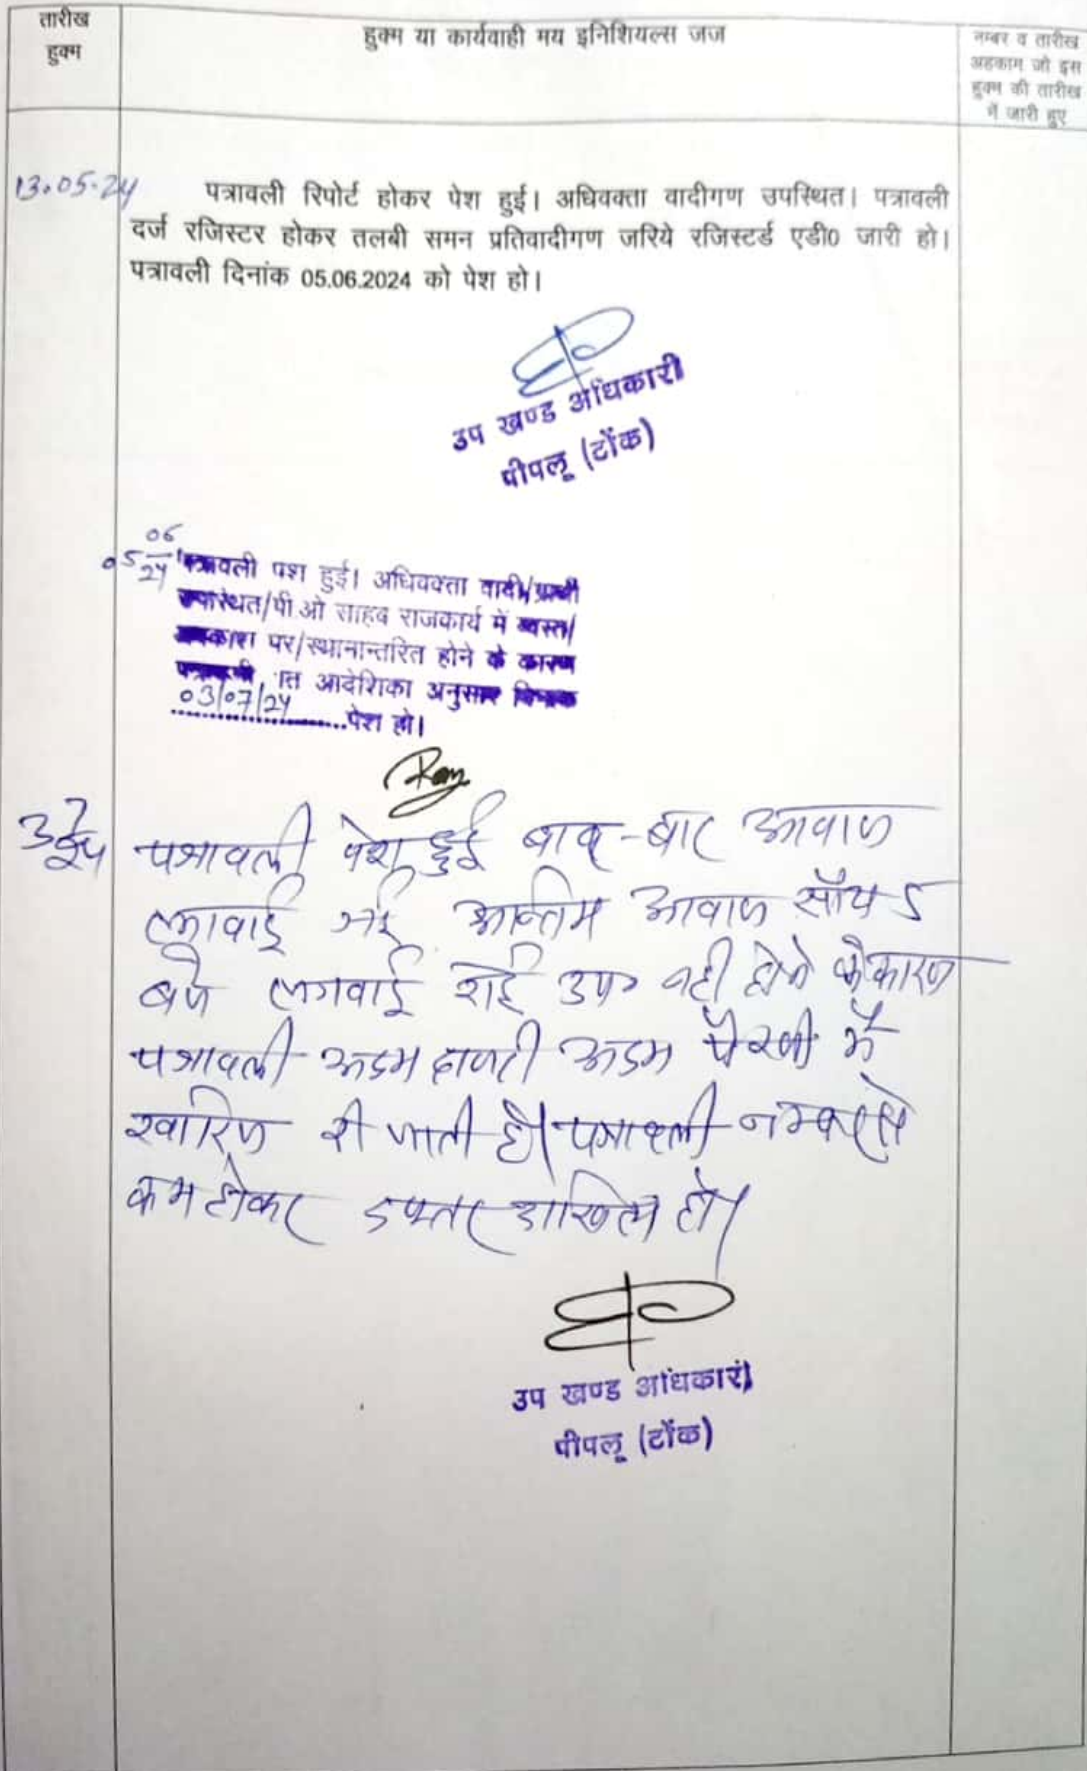 तारीख
हुक्म
हुक्म या कार्यवाही मय इनिशियल्स जज
नम्बर व तारीख
अहकाम जो इस
हुक्म की तारीख
में जारी हुए
13.05.24
पत्रावली रिपोर्ट होकर पेश हुई। अधिवक्ता वादीगण उपस्थित। पत्रावली
दर्ज रजिस्टर होकर तलबी समन प्रतिवादीगण जरिये रजिस्टर्ड एडी0 जारी हो।
पत्रावली दिनांक 05.06.2024 को पेश हो।
उप खण्ड अधिकारी
पीपलू (टोंक)
05 06 24
पत्रावली पेश हुई। अधिवक्ता वादी/प्रार्थी
उपस्थित/पी.ओ साहब राजकार्य में व्यस्त/
अवकाश पर/स्थानान्तरित होने के कारण
आदेशिका अनुसार दिनांक
03/07/24 पेश हो।
3 7 24
पत्रावली पेश हुई बार-बार आवाज
लगवाई गई अन्तिम आवाज सॉय 5
बजे लगवाई गई उप० नही होने के कारण
पत्रावली अदम हाजरी अदम पैरवी में
खारिज की जाती है। पत्रावली नम्बर से
कम होकर दफ्तर दाखिल हो।
उप खण्ड अधिकारी
पीपलू (टोंक)